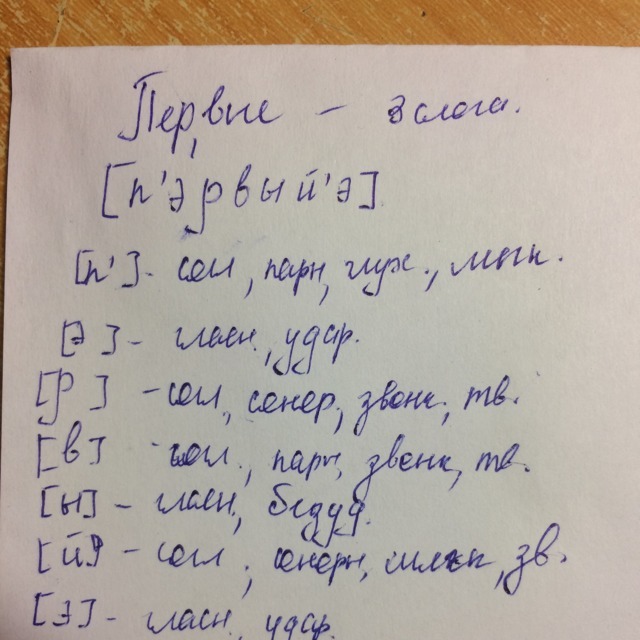 Первые – 3 слога.
[п'э́рвый'э]
[п'] - сол, парн, глух., мягк.
[э] - гласн., удар.
[р] - сол, сонор, звонк., тв.
[в] - согл., парн, звонк, тв.
[ы] - гласн, безуд.
[й'] - согл., сонорн, мягк, зв.
[э] - гласн., удар.